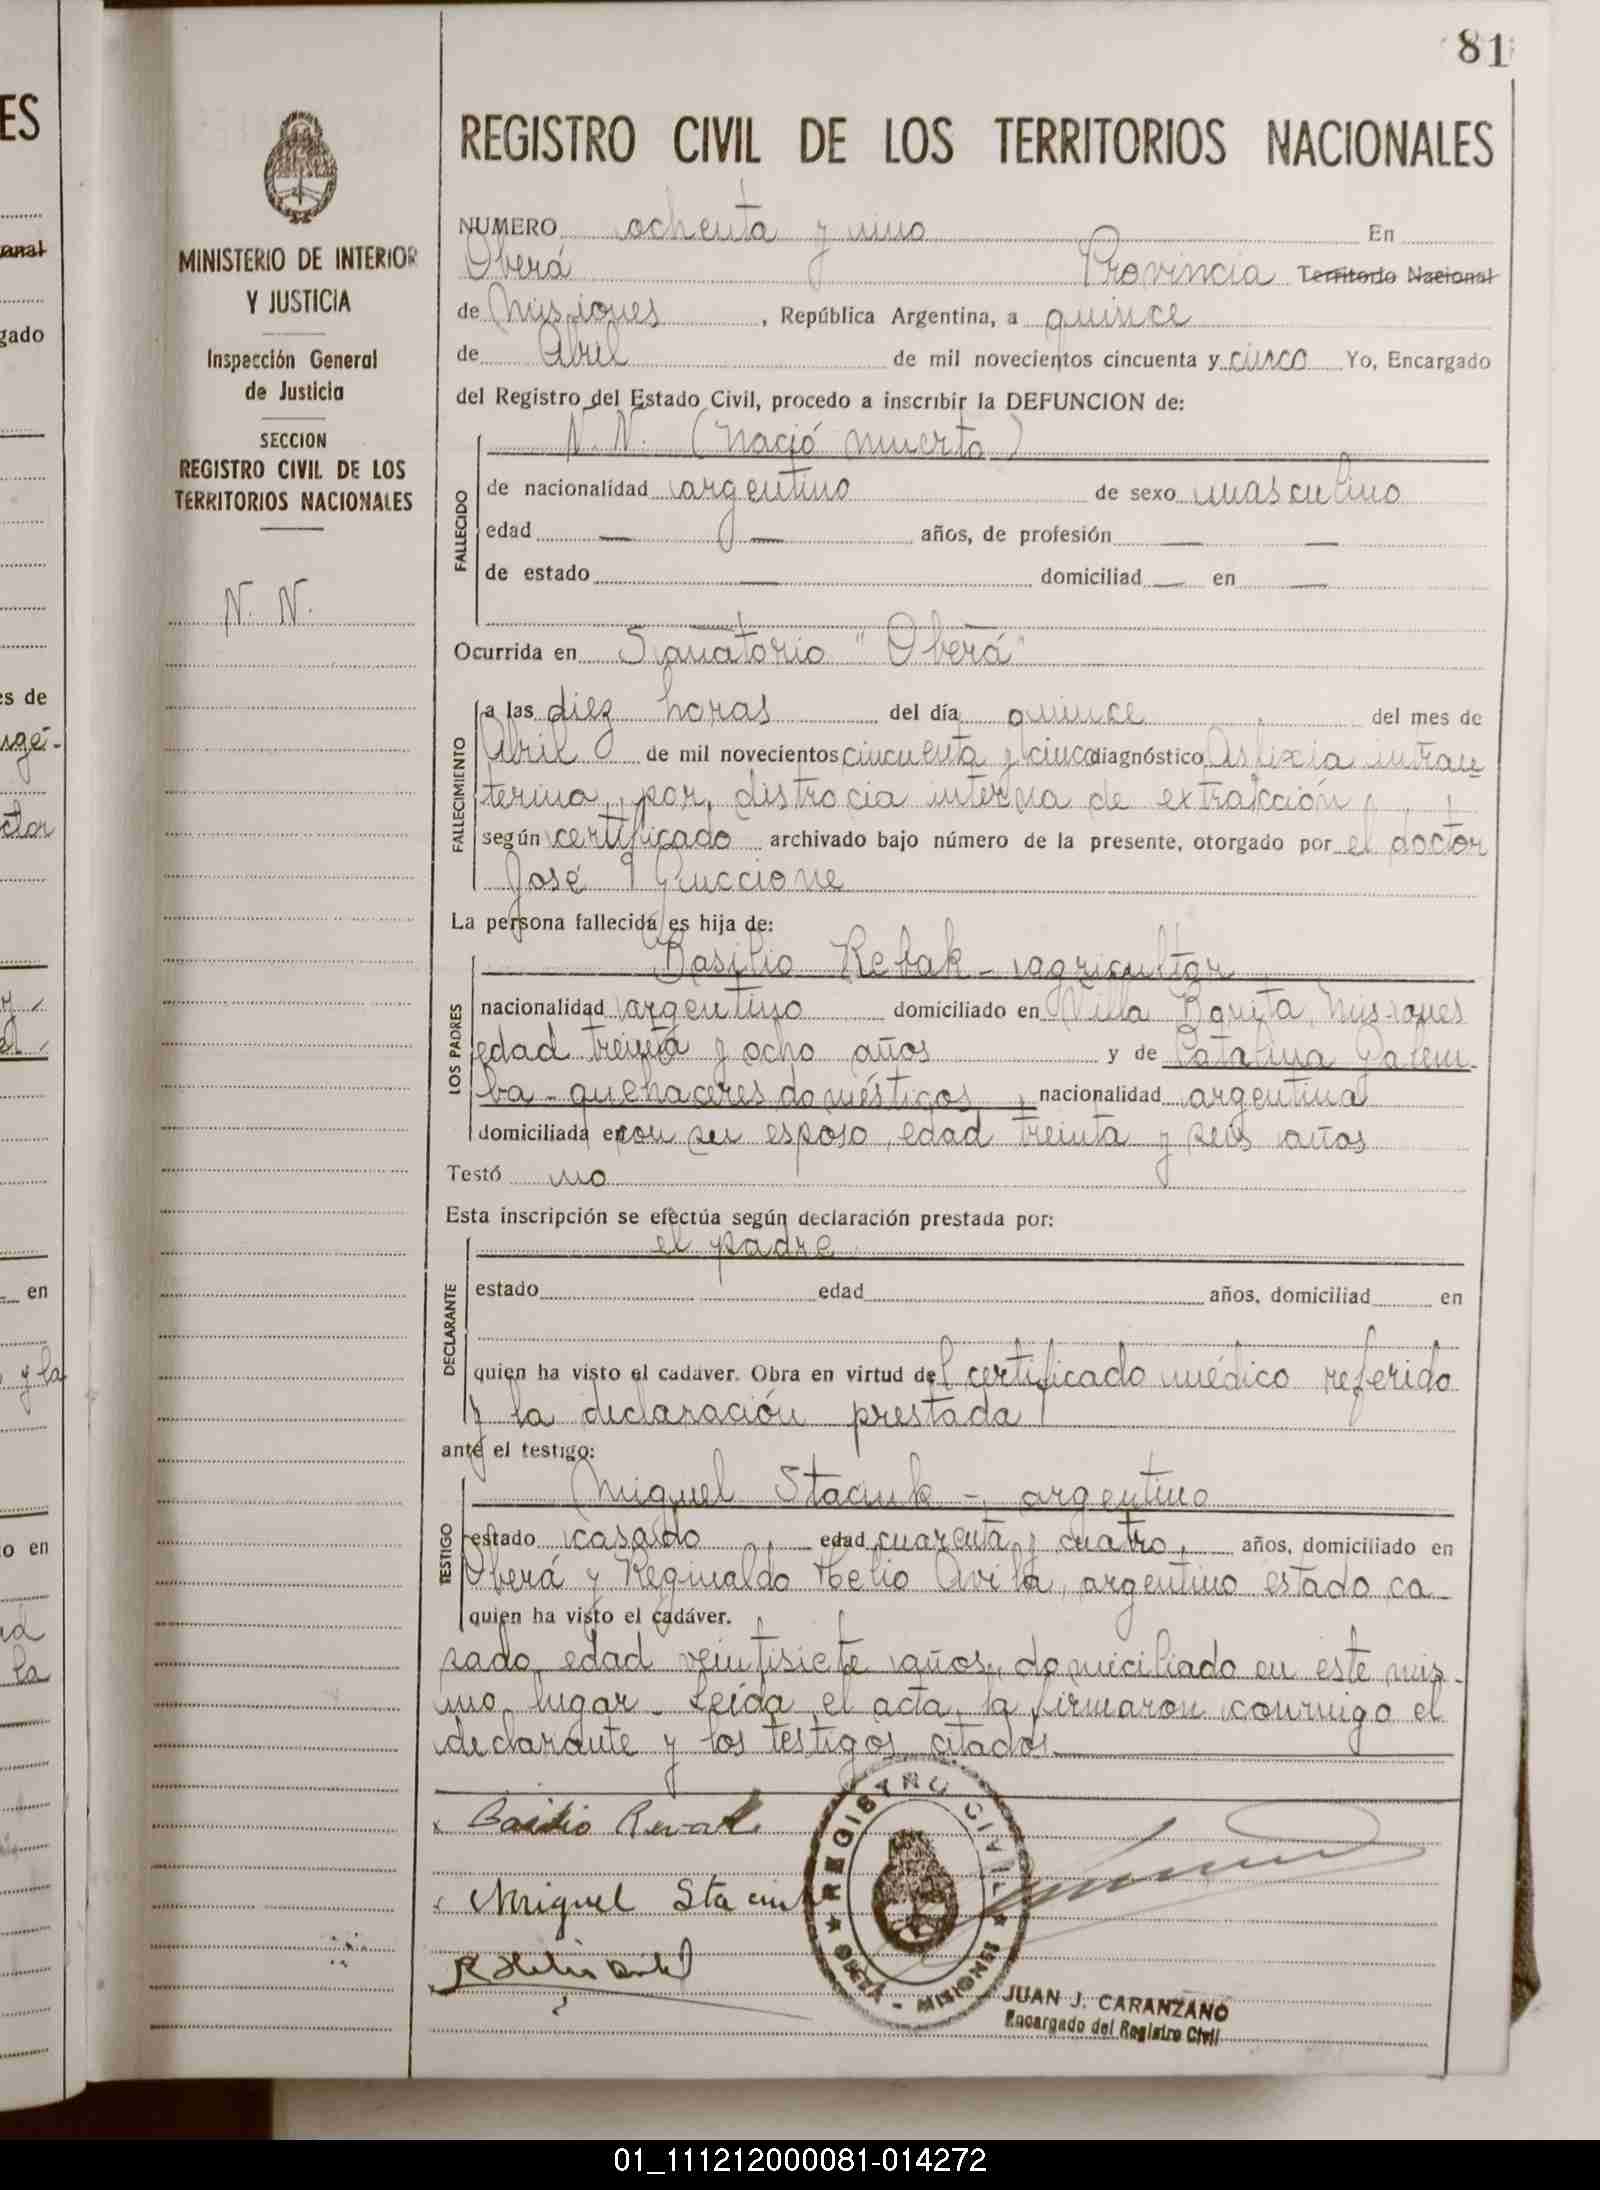 81
REGISTRO CIVIL DE LOS TERRITORIOS NACIONALES
MINISTERIO DE INTERIOR
Y JUSTICIA
Inspección General
de Justicia
SECCION
REGISTRO CIVIL DE LOS
TERRITORIOS NACIONALES
N. N.
NUMERO ochenta y uno En
Oberá Provincia Territorio Nacional
de Misiones, República Argentina, a quince
de Abril de mil novecientos cincuenta y cinco Yo, Encargado
del Registro del Estado Civil, procedo a inscribir la DEFUNCION de:
N. N. (Nació muerto)
FALLECIDO
de nacionalidad argentino de sexo masculino
edad — — años, de profesión — —
de estado — domiciliad — en —
Ocurrida en Sanatorio "Oberá"
FALLECIMIENTO
a las diez horas del día quince del mes de
Abril de mil novecientos cincuenta y cinco diagnóstico Asfixia intrau
terina, por distrocia interna de extracción
según certificado archivado bajo número de la presente, otorgado por el doctor
José Guccione
La persona fallecida es hija de:
LOS PADRES
Basilio Rebak - agricultor
nacionalidad argentino domiciliado en Villa Bonita, Misiones
edad treinta y ocho años y de Catalina
ba - quehaceres domésticos, nacionalidad argentina
domiciliada en con su esposo, edad treinta y seis años
Testó no
Esta inscripción se efectúa según declaración prestada por:
DECLARANTE
el padre
estado edad años, domiciliad en
quien ha visto el cadáver. Obra en virtud del certificado médico referido
y la declaración prestada
ante el testigo:
TESTIGO
Miguel Staciuk -, argentino
estado casado edad cuarenta y cuatro, años, domiciliado en
Oberá y Reginaldo Helio Avila, argentino estado ca-
quien ha visto el cadáver.
sado, edad veintisiete años, domiciliado en este mis-
mo lugar - Leída el acta, la firmaron conmigo el
declarante y los testigos citados.
Basilio Revak
Miguel Staciuk
REGISTRO CIVIL
OBERÁ - MISIONES
JUAN J. CARANZANO
Encargado del Registro Civil
ES
onal
gado
es de
ctor
en
y la
o en
la
01_111212000081-014272